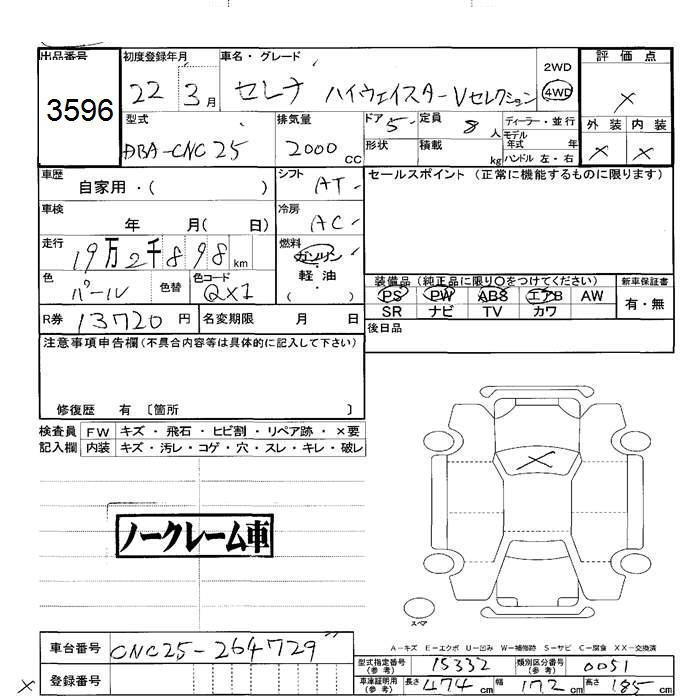 出品番号 初度登録年月 車名・グレード 2WD 評価点
3596 22 3月 セレナ ハイウェイスターVセレクション 4WD ×
型式 排気量 ドア 5 定員 8人 ディーラー・並行 外装 内装
DBA-CNC25 2000cc 形状 積載 kg モデル年式 年 × ×
ハンドル 左・右
車歴 自家用・( ) シフト AT セールスポイント (正常に機能するものに限ります)
車検 年 月( 日) 冷房 AC
走行 19万2千898km 燃料 ガソリン・軽・油
( )
色 パール 色替 色コード QX1 装備品 (純正品に限り○をつけてください) 新車保証書
PS PW ABS エアB AW 有・無
SR ナビ TV カワ
R券 13720円 名変期限 月 日 後日品
注意事項申告欄(不具合内容等は具体的に記入して下さい)
修復歴 有 〔箇所 〕
検査員 FW キズ・飛石・ヒビ割・リペア跡・×要
記入欄 内装 キズ・汚レ・コゲ・穴・スレ・キレ・破レ
×
ノークレーム車
スペア
A-キズ E-エクボ U-凹み W-補修跡 S-サビ C-腐食 XX-交換済
車台番号 CNC25-264729
型式指定番号(参考) 15332 類別区分番号(参考) 0051
登録番号 車庫証明用(参考) 長さ 474cm 幅 172cm 高さ 185cm
×